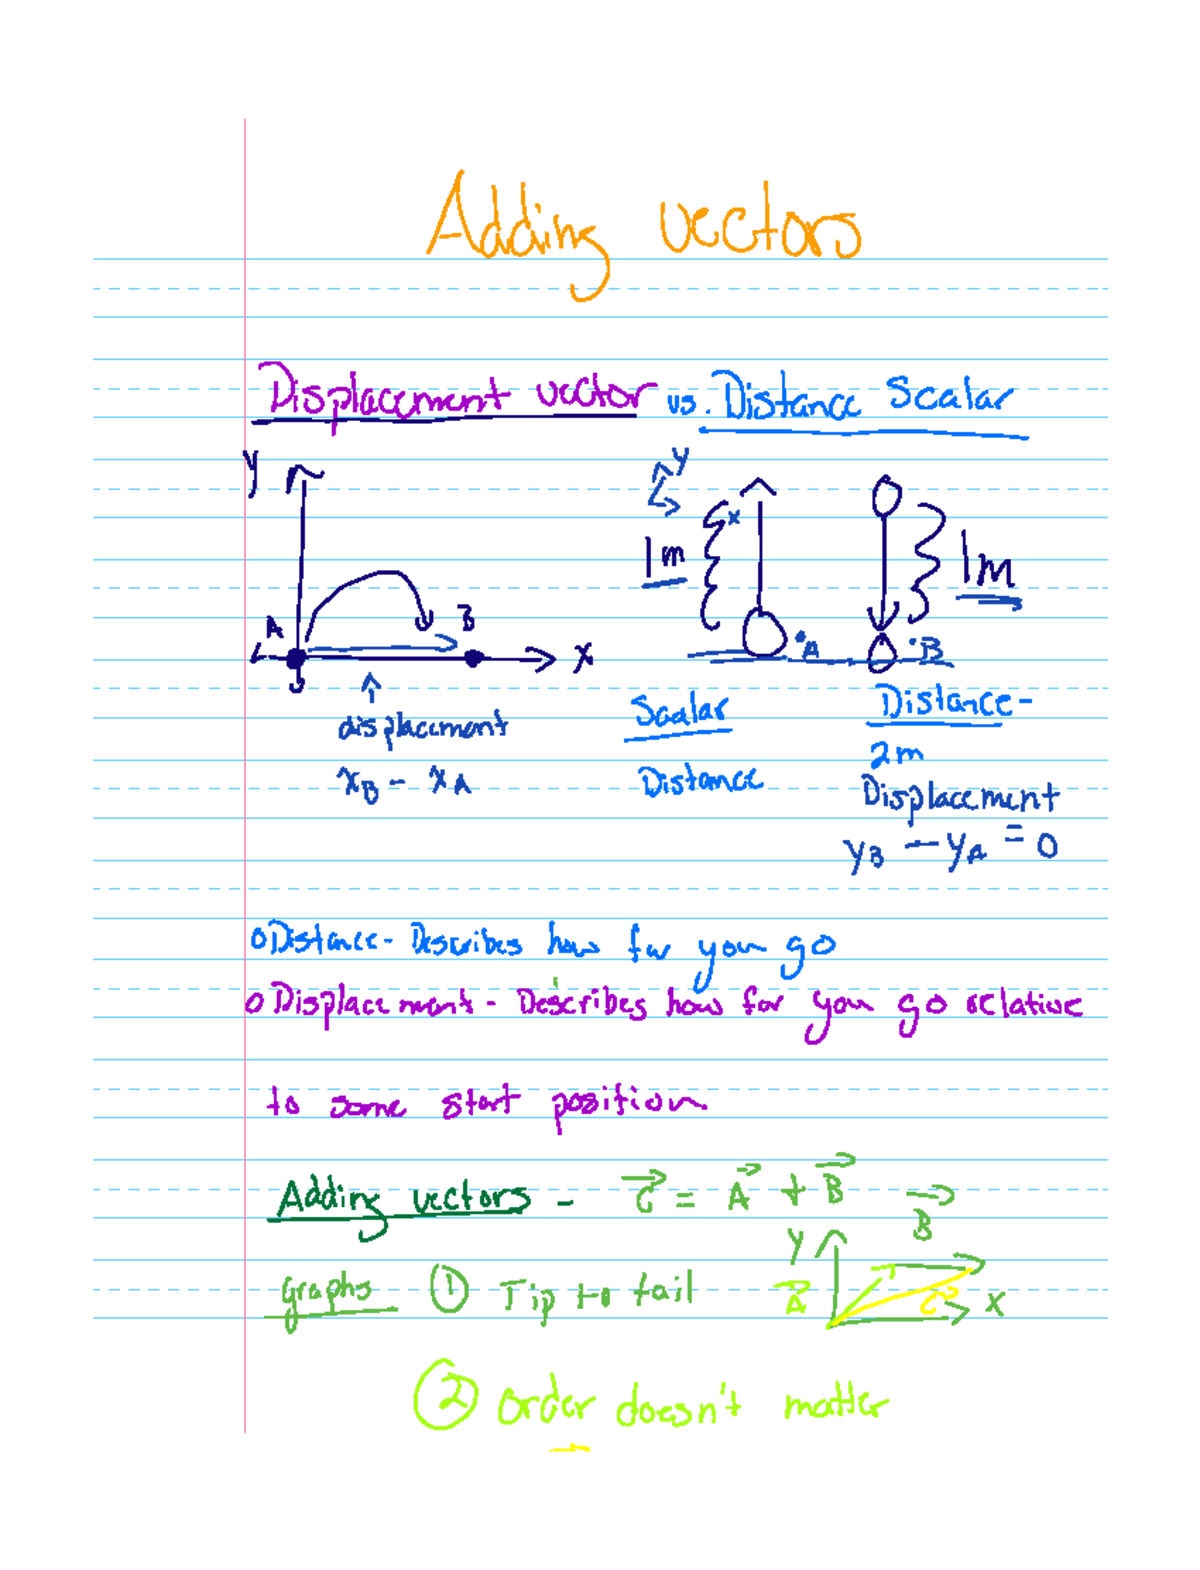 Adding vectors
Displacement vector vs. Distance Scalar
y
y
x
1m
1m
A
B
x
A
B
displacement
Scalar
Distance-
xB - xA
Distance
2m
Displacement
yB - yA = 0
o Distance- Describes how far you go
o Displacement - Describes how far you go relative
to some start position
Adding vectors - C = A + B
B
y
graphs ① Tip to tail
A
C
x
② order doesn't matter